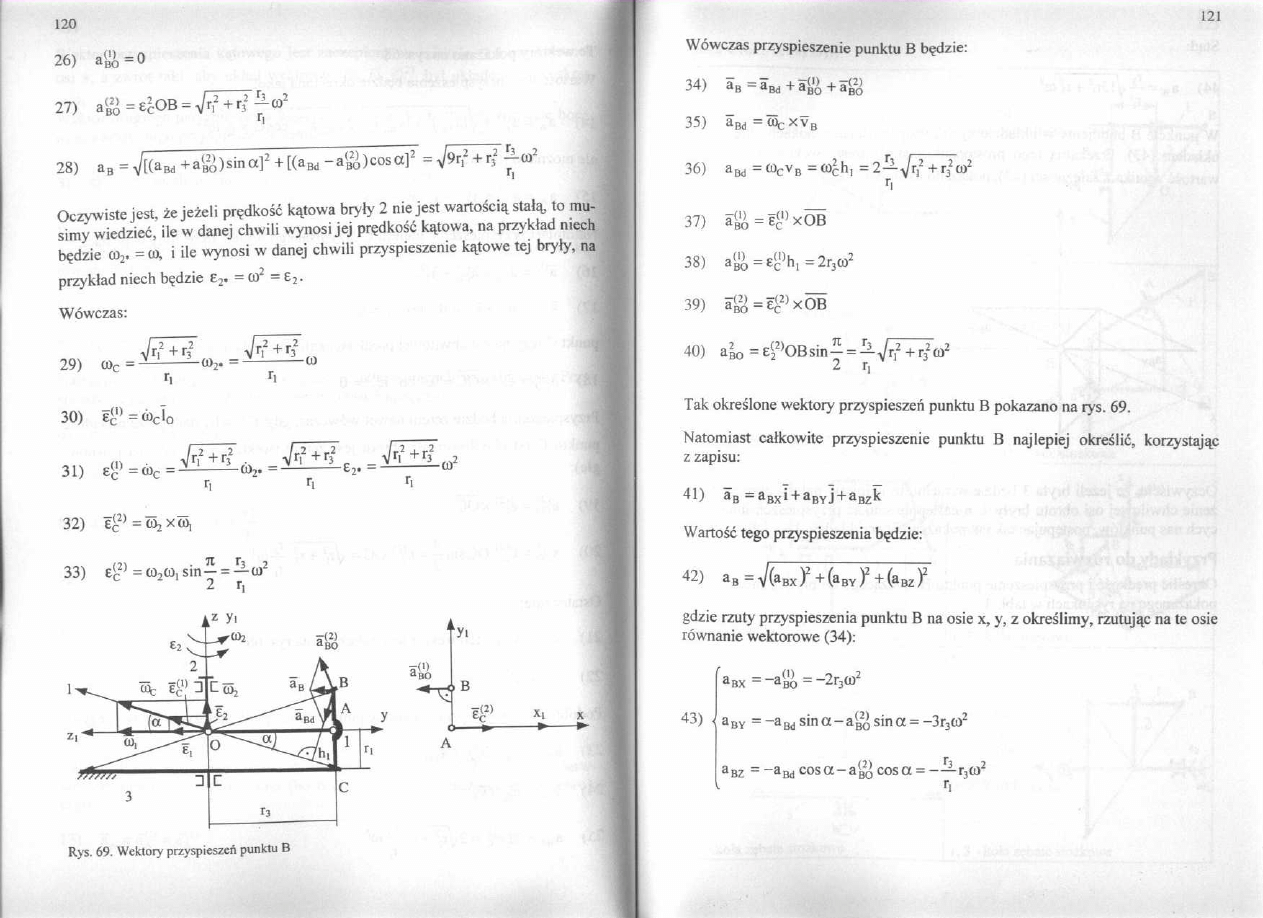 120
26) a_{BO}^{(1)} = 0
27) a_{BO}^{(2)} = ε_C^2 OB = √(r_1^2 + r_3^2) r_3/r_1 ω^2
28) a_B = √([(a_{Bd} + a_{BO}^{(2)}) sin α]^2 + [(a_{Bd} − a_{BO}^{(2)}) cos α]^2) = √(9r_1^2 + r_3^2) r_3/r_1 ω^2
Oczywiste jest, że jeżeli prędkość kątowa bryły 2 nie jest wartością stałą, to mu-
simy wiedzieć, ile w danej chwili wynosi jej prędkość kątowa, na przykład niech
będzie ω_{2*} = ω, i ile wynosi w danej chwili przyspieszenie kątowe tej bryły, na
przykład niech będzie ε_{2*} = ω^2 = ε_2.
Wówczas:
29) ω_C = √(r_1^2 + r_3^2)/r_1 ω_{2*} = √(r_1^2 + r_3^2)/r_1 ω
30) ε̄_C^{(1)} = ω̇_C l̄_0
31) ε_C^{(1)} = ω̇_C = √(r_1^2 + r_3^2)/r_1 ω̇_{2*} = √(r_1^2 + r_3^2)/r_1 ε_{2*} = √(r_1^2 + r_3^2)/r_1 ω^2
32) ε̄_C^{(2)} = ω̄_2 × ω̄_1
33) ε_C^{(2)} = ω_2 ω_1 sin π/2 = r_3/r_1 ω^2
z y_1
ε_2 ω_2 ā_{BO}^{(2)} y_1
2 ā_{BO}^{(1)}
1 ω̄_C ε̄_C^{(1)} ω̄_2 ā_B B B
α ε̄_2 ā_{Bd} A y ε̄_C^{(2)} x_1 x
z_1 ω̄_1 ε̄_1 O α h_1 1 r_1 A
3 C
r_3
Rys. 69. Wektory przyspieszeń punktu B
121
Wówczas przyspieszenie punktu B będzie:
34) ā_B = ā_{Bd} + ā_{BO}^{(1)} + ā_{BO}^{(2)}
35) ā_{Bd} = ω̄_C × v̄_B
36) a_{Bd} = ω_C v_B = ω_C^2 h_1 = 2 r_3/r_1 √(r_1^2 + r_3^2) ω^2
37) ā_{BO}^{(1)} = ε̄_C^{(1)} × OB
38) a_{BO}^{(1)} = ε_C^{(1)} h_1 = 2r_3 ω^2
39) ā_{BO}^{(2)} = ε̄_C^{(2)} × OB
40) a_{BO}^2 = ε_2^{(2)} OB sin π/2 = r_3/r_1 √(r_1^2 + r_3^2) ω^2
Tak określone wektory przyspieszeń punktu B pokazano na rys. 69.
Natomiast całkowite przyspieszenie punktu B najlepiej określić, korzystając
z zapisu:
41) ā_B = a_{BX} ī + a_{BY} j̄ + a_{BZ} k̄
Wartość tego przyspieszenia będzie:
42) a_B = √((a_{BX})^2 + (a_{BY})^2 + (a_{BZ})^2)
gdzie rzuty przyspieszenia punktu B na osie x, y, z określimy, rzutując na te osie
równanie wektorowe (34):
a_{BX} = −a_{BO}^{(1)} = −2r_3 ω^2
43) a_{BY} = −a_{Bd} sin α − a_{BO}^{(2)} sin α = −3r_3 ω^2
a_{BZ} = −a_{Bd} cos α − a_{BO}^{(2)} cos α = −r_3/r_1 r_3 ω^2